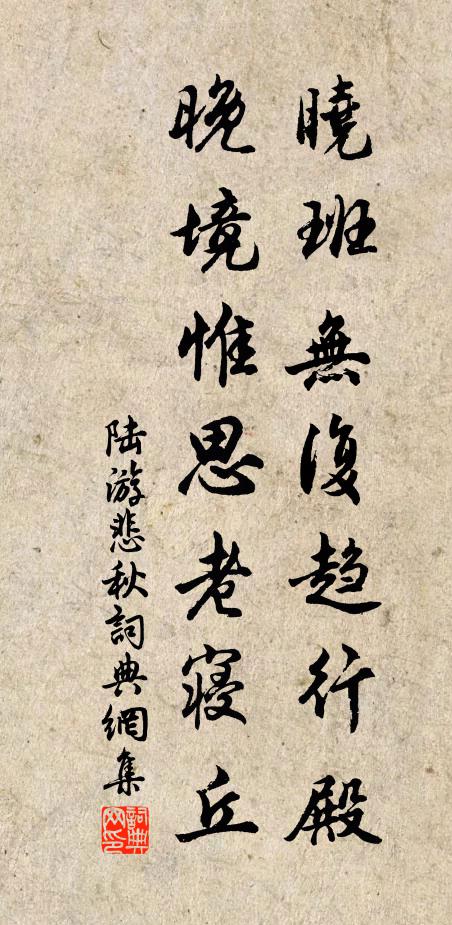 曉班無復趨行殿
晚境惟思老寝丘
陆游悲秋詞典網集
詞典網印